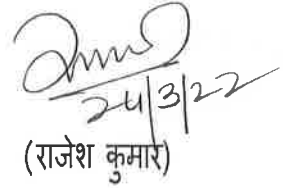 24/3/22
(राजेश कुमार)